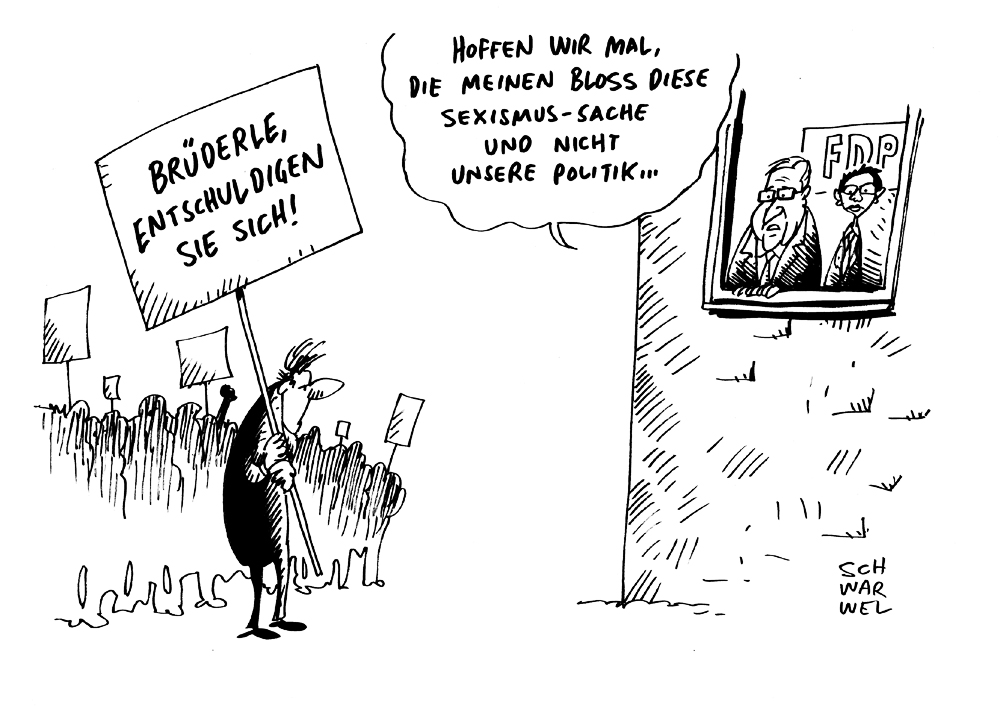 HOFFEN WIR MAL,
DIE MEINEN BLOSS DIESE
SEXISMUS-SACHE
UND NICHT
UNSERE POLITIK...
BRÜDERLE,
ENTSCHULDIGEN
SIE SICH!
FDP
SCH
WAR
WEL